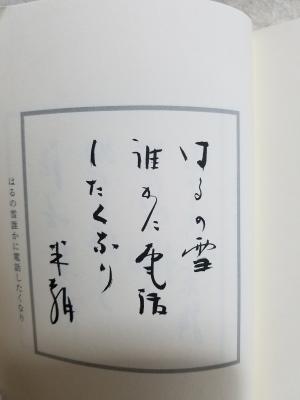 はるの雪
誰かに電話
したくなり
米朝
はるの雪誰かに電話したくなり